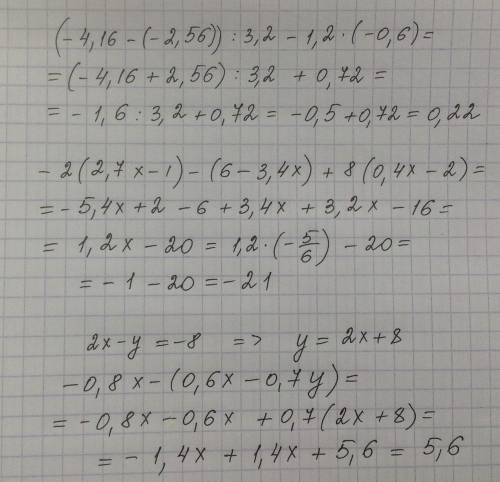 (-4,16 - (-2,56)) : 3,2 - 1,2 · (-0,6) =
= (-4,16 + 2,56) : 3,2 + 0,72 =
= - 1,6 : 3,2 + 0,72 = -0,5 + 0,72 = 0,22
- 2(2,7x - 1) - (6 - 3,4x) + 8(0,4x - 2) =
= - 5,4x + 2 - 6 + 3,4x + 3,2x - 16 =
= 1,2x - 20 = 1,2 · (-5/6) - 20 =
= - 1 - 20 = - 21
2x - y = -8 => y = 2x + 8
-0,8x - (0,6x - 0,7y) =
= -0,8x - 0,6x + 0,7(2x + 8) =
= - 1,4x + 1,4x + 5,6 = 5,6